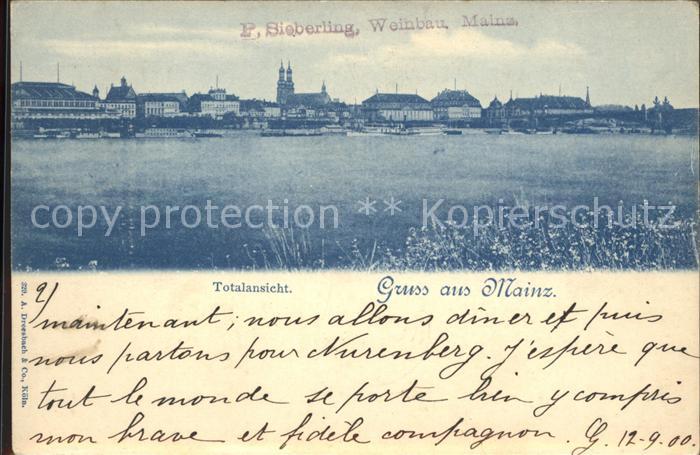 P. Sieberling, Weinbau, Mainz.
copy protection ** Kopierschutz
Totalansicht.
Gruss aus Mainz.
229. A. Dreesbach & Co., Köln.
2/
maintenant; nous allons dîner et puis
nous partons pour Nurenberg. J'espère que
tout le monde se porte bien y compris
mon brave et fidèle compagnon. G. 12-9.00.